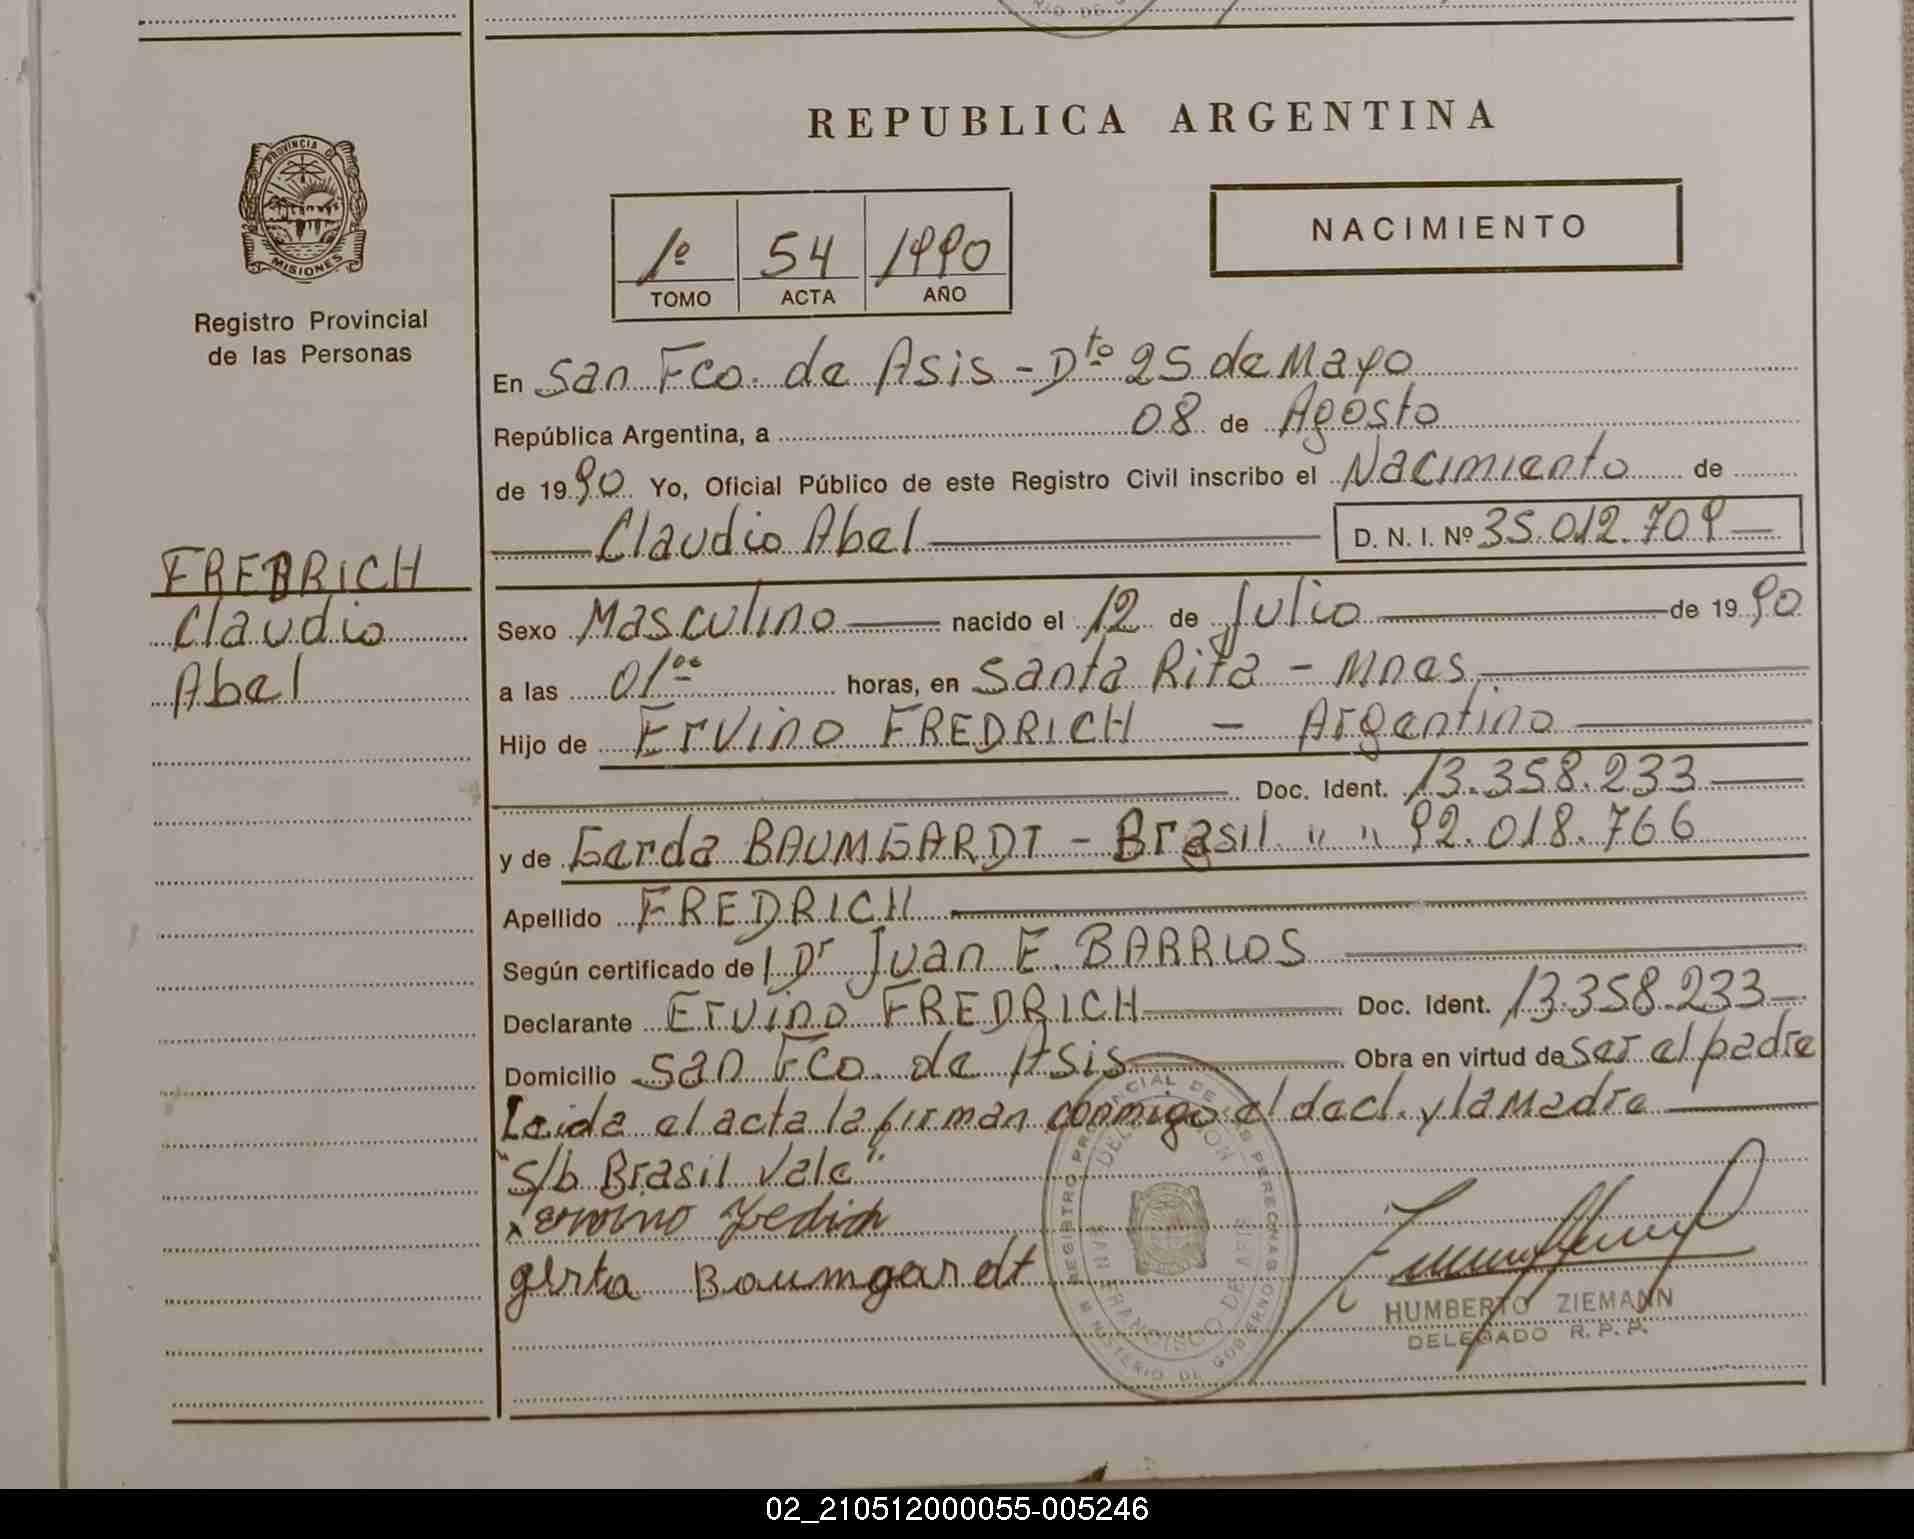 REPUBLICA ARGENTINA
PROVINCIA DE
MISIONES
Registro Provincial
de las Personas
1º 54 1990
TOMO ACTA AÑO
NACIMIENTO
En San Fco. de Asis - Dto 25 de Mayo
República Argentina, a 08 de Agosto
de 1990 Yo, Oficial Público de este Registro Civil inscribo el Nacimiento de
Claudio Abel D. N. I. Nº 35.012.709
FREDRICH
Claudio
Abel
Sexo Masculino nacido el 12 de Julio de 1990
a las 01ºº horas, en Santa Rita - Mnes
Hijo de Ervino FREDRICH - Argentino
Doc. Ident. 13.358.233
y de Gerda BAUMGARDT - Brasil " " 92.018.766
Apellido FREDRICH
Según certificado del Dr Juan E. BARRIOS
Declarante Ervino FREDRICH Doc. Ident. 13.358.233
Domicilio San Fco. de Asis Obra en virtud de ser el padre
Leida el acta la firman conmigo el decl. y la Madre
"s/b Brasil Vale"
gerta Baumgardt
HUMBERTO ZIEMANN
DELEGADO R. P. P.
02_210512000055-005246